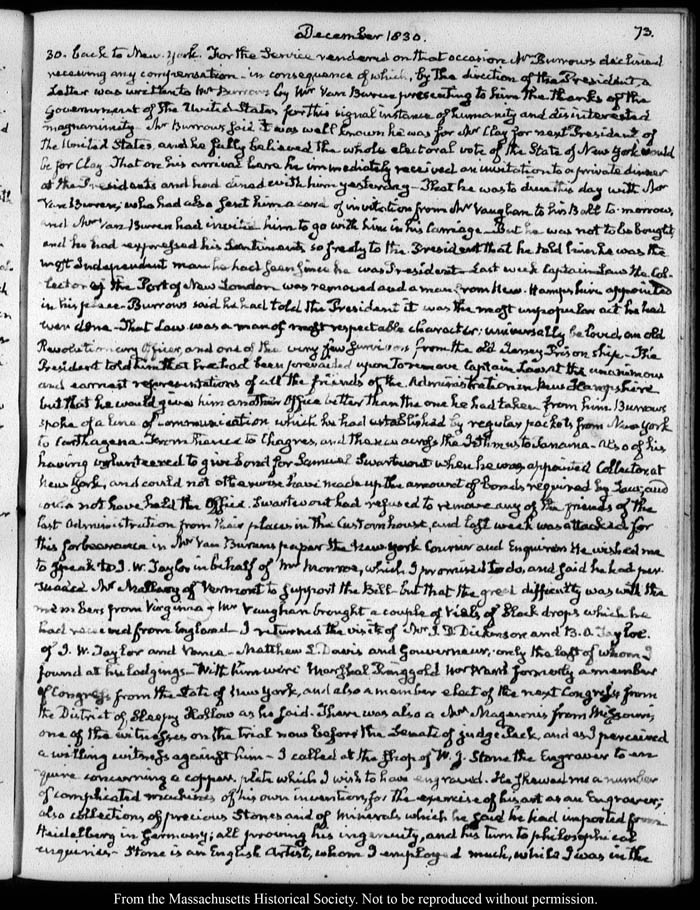 December 1830.
73.
30. back to New-York. For the Service rendered on that occasion Mr Burrows declined
receiving any compensation - in consequence of which, by the direction of the President, a
Letter was written to Mr Burrows by Mr Van Buren presenting to him the thanks of the
Government of the United States for this signal instance of humanity and disinterested
magnanimity. Mr Burrows said it was well known he was for Mr Clay for next President of
the United States, and he fully believed the whole electoral vote of the State of New York would
be for Clay. That on his arrival here he immediately received an invitation to a private dinner
at the Presidents and had dined with him yesterday - That he was to dine this day with Mr
Van Buren; who had also sent him a card of invitation from Mr Vaughan to his Ball to-morrow,
and Mr Van Buren had invited him to go with him in his carriage - But he was not to be bought
and he had expressed his Sentiments so freely to the President that he told him he was the
most Independent man he had seen since he was President - Last week Captain Law the Col-
lector of the Port of New London was removed and a man from New-Hampshire appointed
in his place - Burrows said he had told the President it was the most unpopular act he had
ever done - That Law was a man of most respectable character; universally beloved, an old
Revolutionary Officer, and one of the very few Survivors from the old Jersey Prison Ship - The
President told him that he had been prevailed upon to remove Captain Law at the unanimous
and earnest representations of all the friends of the Administration in New Hampshire
but that he would give him another Office better than the one he had taken from him. Burrows
spoke of a Line of communication which he had established by regular packets from New York
to Carthagena. From thence to Chagres, and thence across the Isthmus to Panama. Also of his
having volunteered to give bond for Samuel Swartwout when he was appointed Collector at
New York, and could not otherwise have made up the amount of bonds required by Law, and
could not have held the Office. Swartwout had refused to remove any of the friends of the
last Administration from their places in the Customhouse, and last week was attacked for
this forbearance in Mr Van Burens paper the New York Courier and Enquirer. He wished me
to speak to J. W. Taylor in behalf of Mr Monroe, which I promised to do, and said he had per-
suaded Mr Mallary of Vermont to support the Bill - but that the great difficulty was with the
members from Virginia - Mr Vaughan brought a couple of Vials of Black drops which he
had received from England - I returned the visits of Mr J. D. Dickinson and B. O. Tayloe.
of J. W. Taylor and Vance - Matthew L. Davis and Gouverneur; only the last of whom I
found at his lodgings - With him were Marshal Ringgold Mr Ward formerly a member
of Congress from the State of New York, and also a member elect of the next Congress from
the District of Sleepy Hollow as he said. There was also a Mr Magennis from Missouri,
one of the witnesses on the trial now before the Senate of Judge Peck, and as I perceived
a willing witness against him - I called at the shop of W. J. Stone the Engraver to en-
quire concerning a copper plate which I wish to have engraved. He shewed me a number
of complicated machines of his own invention, for the exercise of his art as an Engraver;
also collections of precious Stones and of Minerals which he said he had imported from
Heidelberg in Germany; all proving his ingenuity, and his turn to philosophical
enquiries - Stone is an English Artist, whom I employed much, while I was in the
From the Massachusetts Historical Society. Not to be reproduced without permission.